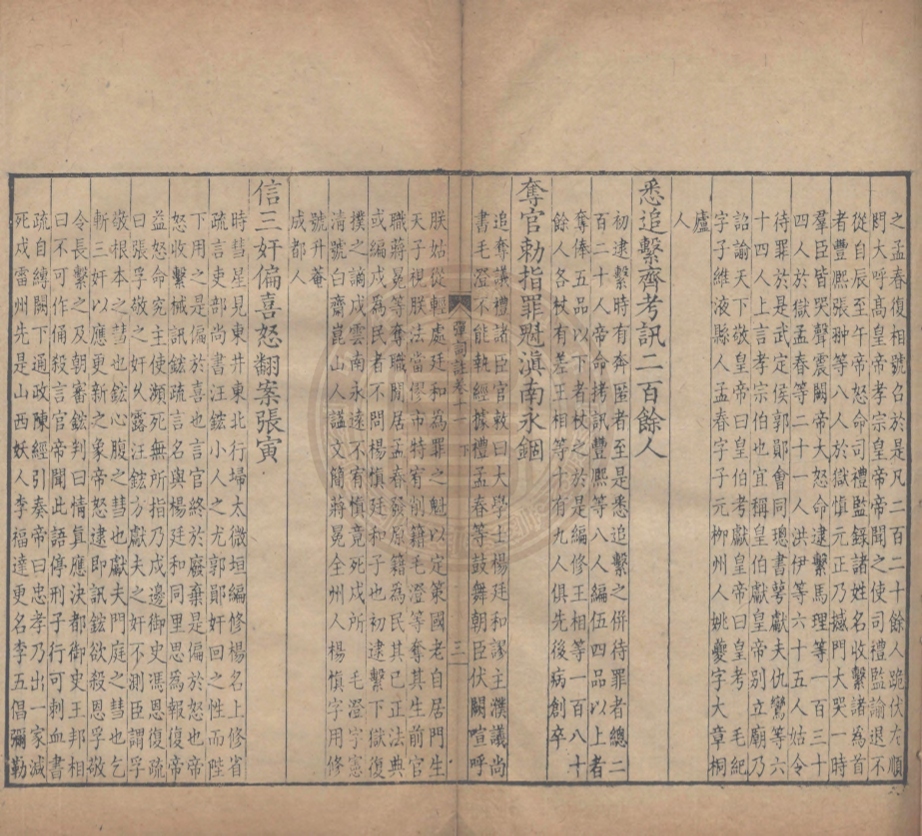 之孟春復宣言於衆於是凡二百二十餘人跪伏左順
門大呼高皇帝孝宗皇帝帝聞之使司禮監諭退不
從自辰至午帝怒命司禮監錄諸姓名收繫諸為首
者豐熙張翀等八人於獄慎元正乃撼門大哭一時
羣臣皆哭聲震闕帝大怒命逮繫馬理等一百三十
四人於獄孟春等二十一人洪伊等六十五人姑令
待罪於是武定侯郭勛會同璁書萼獻夫仇鸞等六
十四人上言孝宗伯也宜稱皇伯獻皇帝別立廟乃
詔諭天下敬皇帝曰皇伯考獻皇帝曰皇考 毛紀
字子維液縣人孟春字子元柳州人姚夔字大章桐
廬
人
悉追繫齊考訊二百餘人
初逮繫時有奔匿者至是悉追繫之併待罪者總二
百二十人帝命拷訊豐熙等八人編伍四品以上者
奪俸五品以下者杖之於是編修王相等一百八十
餘人各杖有差王相等十有九人俱先後病創卒
奪官勅指罪魁滇南永錮
追奪議禮諸臣官敕曰大學士楊廷和謬主濮議尚
書毛澄不能執經據禮孟春等鼓舞朝臣伏闕喧呼
彈詞註卷十一 下 三
朕始從輕處廷和為罪之魁以定策國老自居門生
天子視朕法當僇市特宥削籍毛澄等奪其生前官
職蔣冕等奪職閒居孟春發原籍為民其已正法典
或編戍為民者不問楊慎廷和子也初逮繫下獄復
撲之謫戍雲南永遠不宥慎竟死戍所 毛澄字憲
清號白齋崑山人謚文簡蔣冕全州人楊慎字用修
號升菴
成都人
信三奸偏喜怒翻案張寅
時彗星見東井東北行埽太微垣編修楊名上修省
疏言吏部尚書汪鋐小人之尤郭勛奸回之性而陛
下用之是偏於喜也言官終於廢棄是偏於怒也帝
怒收繫械訊鋐疏言名與楊廷和同里思為報復帝
益怒命究主使瀕死無所指乃戍邊御史馮恩復疏
曰張孚敬之奸久露汪鋐方獻夫之奸不測臣謂孚
敬根本之彗也鋐心腹之彗也獻夫門庭之彗也乞
斬三奸以應更新之象帝怒逮即訊鋐欲殺恩孚敬
令長繫之及朝審鋐判曰情真應決都御史王邦相
曰不可作俑殺言官帝聞此語停刑子行可刺血書
疏自縛闕下通政陳經引奏帝曰忠孝乃出一家減
死戍雷州先是山西妖人李福達更名李五倡彌勒